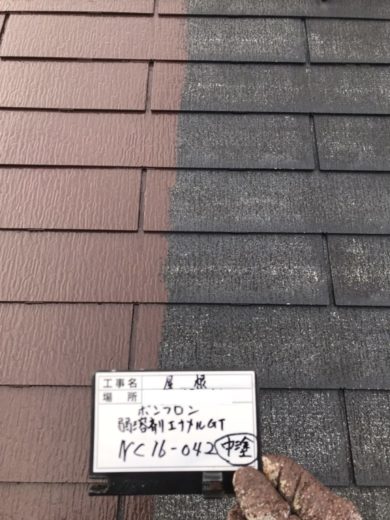 工事名 屋根
場所
ボンフロン
弱溶剤エナメルGT
NC16-042 中塗